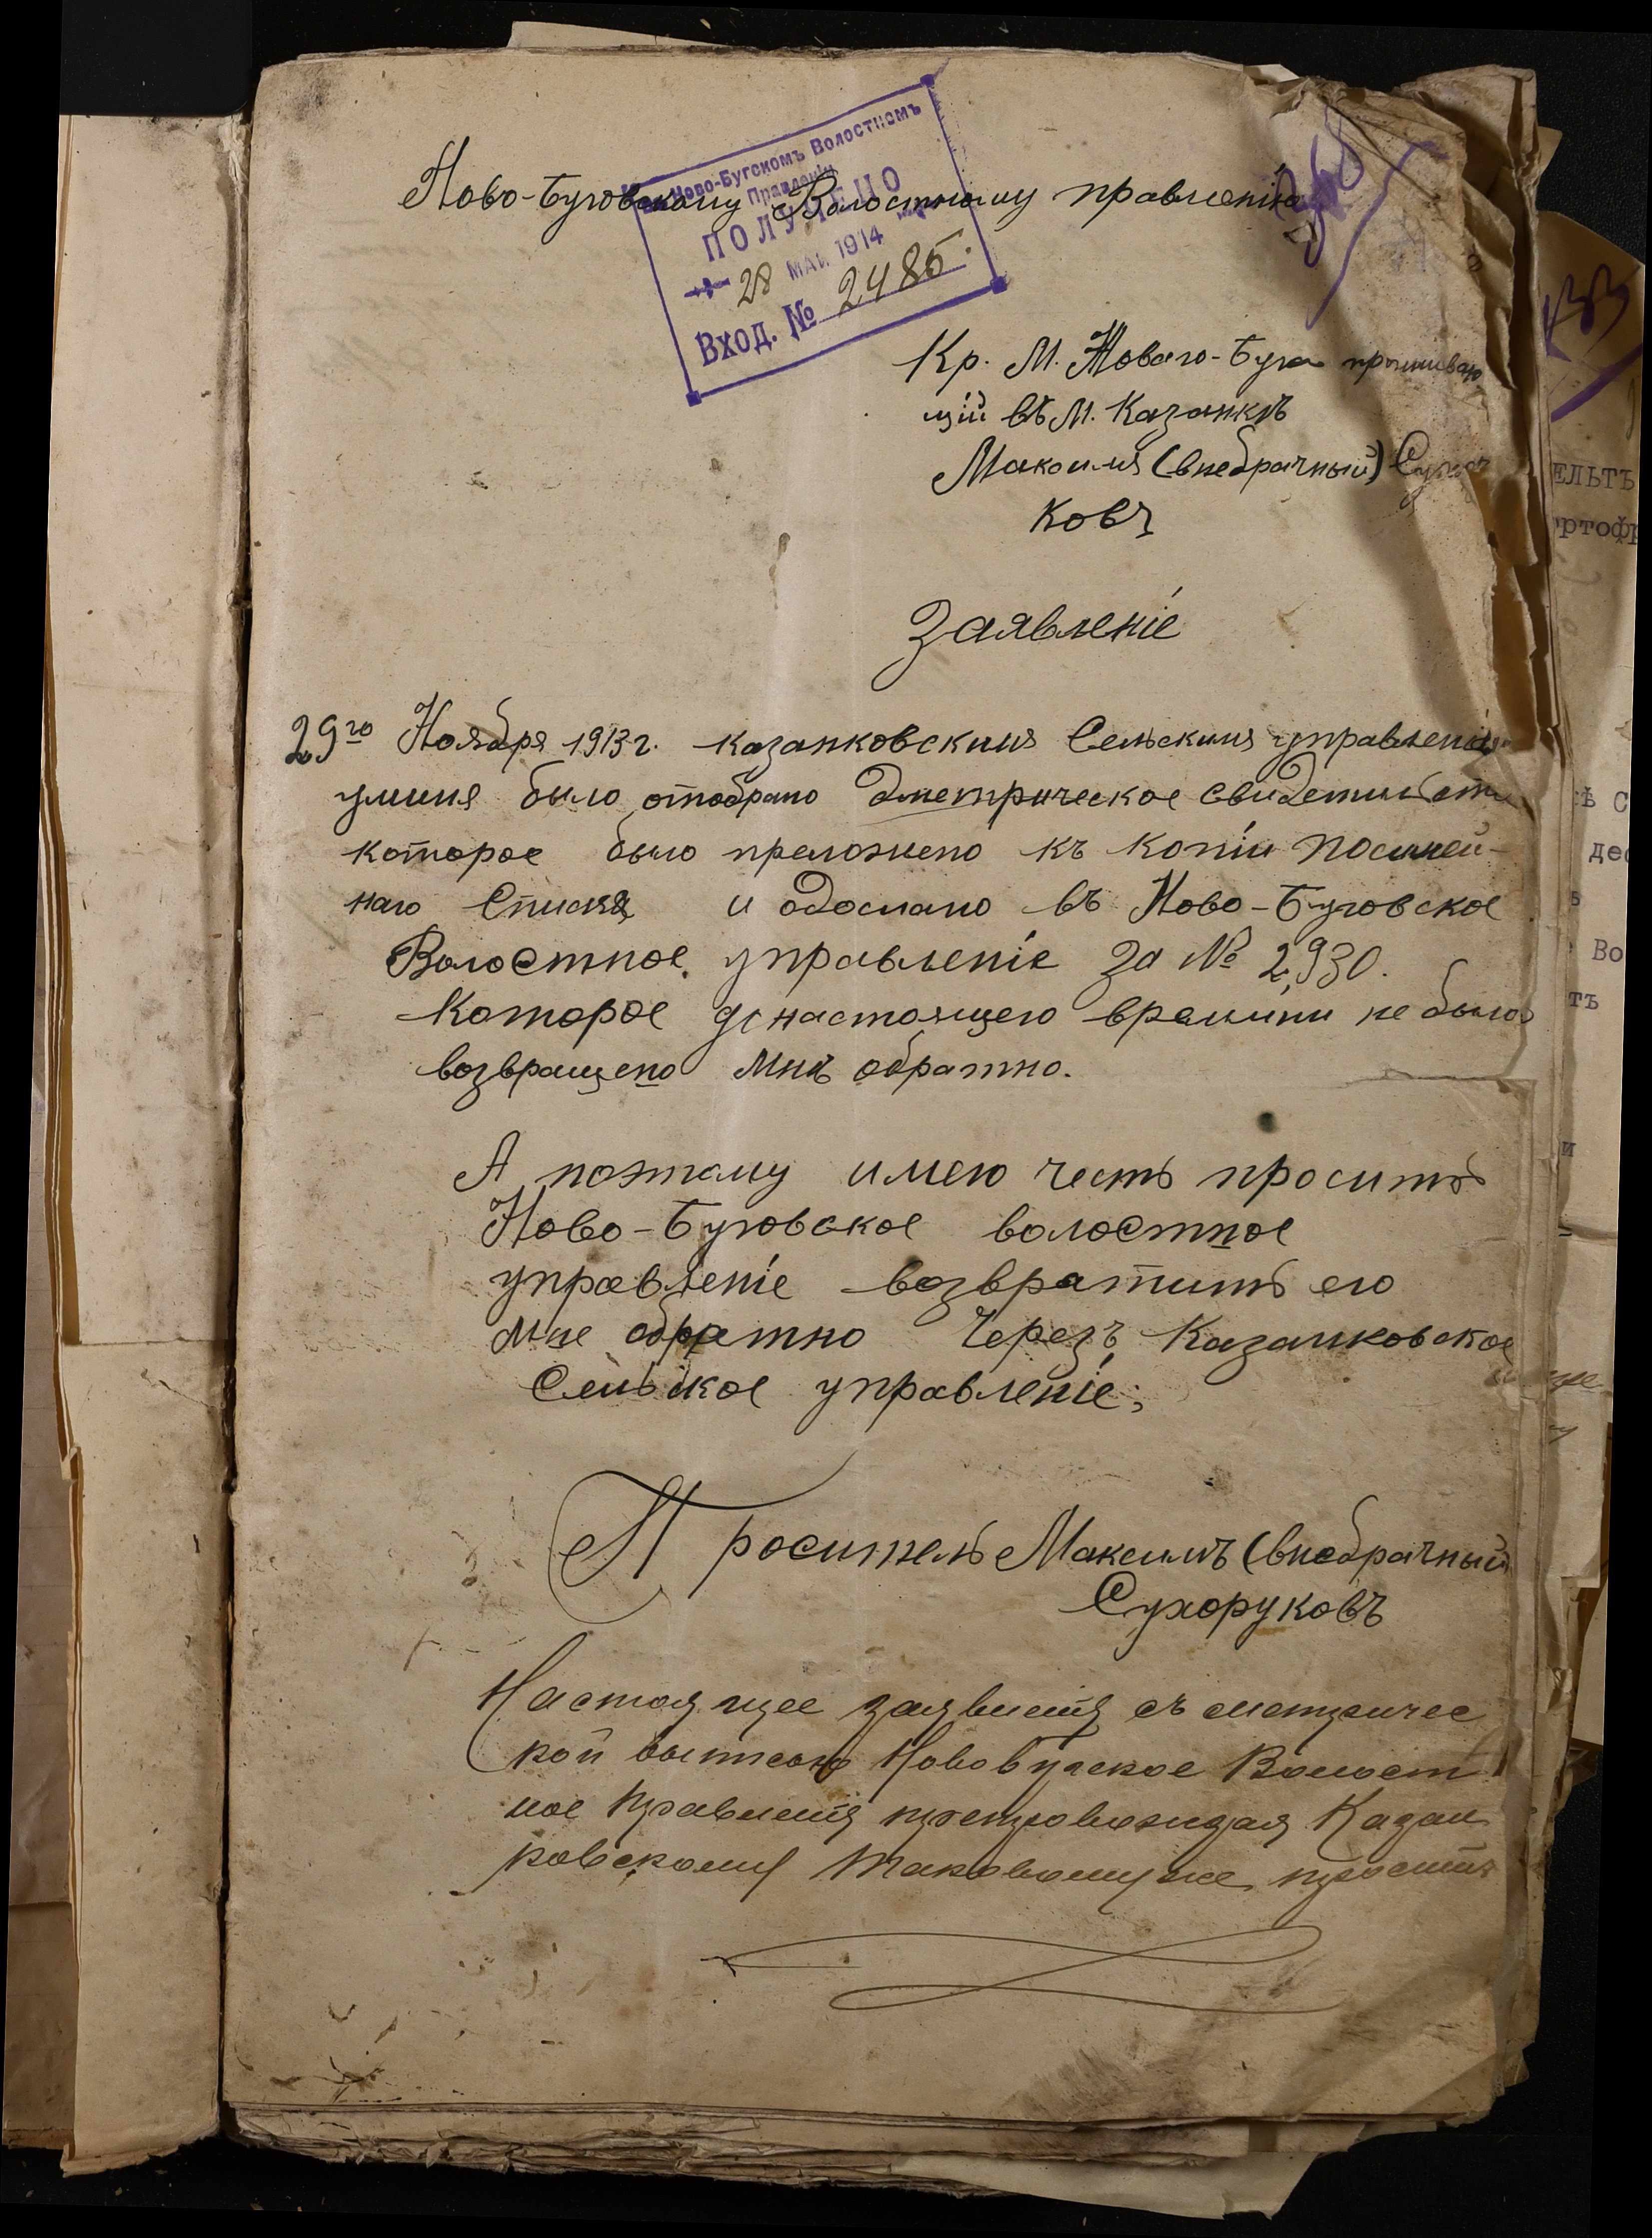 Ново-Бугскомъ Волостномъ
Правленіи
ПОЛУЧЕНО
28 МАЯ 1914
Вход. № 2485.
Ново-Буговскому Волостному правленію
Кр. М. Новаго-Буга проживаю
щій въ М. Казанкѣ
Максимъ (внебрачный)
ковъ
Заявленіе
29го Ноября 1913 г. Казанковскимъ Сельскимъ управленіем
уминя было отобрано Эметрическое свидетильств
которое было преложено къ копіи посимей-
наго Списка и одослано въ Ново-Буговское
Волостное управленіе за № 2930.
Которое до настоящего времини не было
возвращено мнѣ обратно.
А поэтому имею честь просить
Ново-Буговское волостное
управленіе возвратить его
мне обратно Черезъ Казанковское
Сельское управленіе;
Проситель Максимъ (внебрачный
Сухоруковъ
Настоящее заявленіе съ метричес
кой выписью Новобугское Волост
ное Правленія препровождая Казан
ковскому таковому же просить
ЕЛЬТЪ
ртоф
Во
тъ